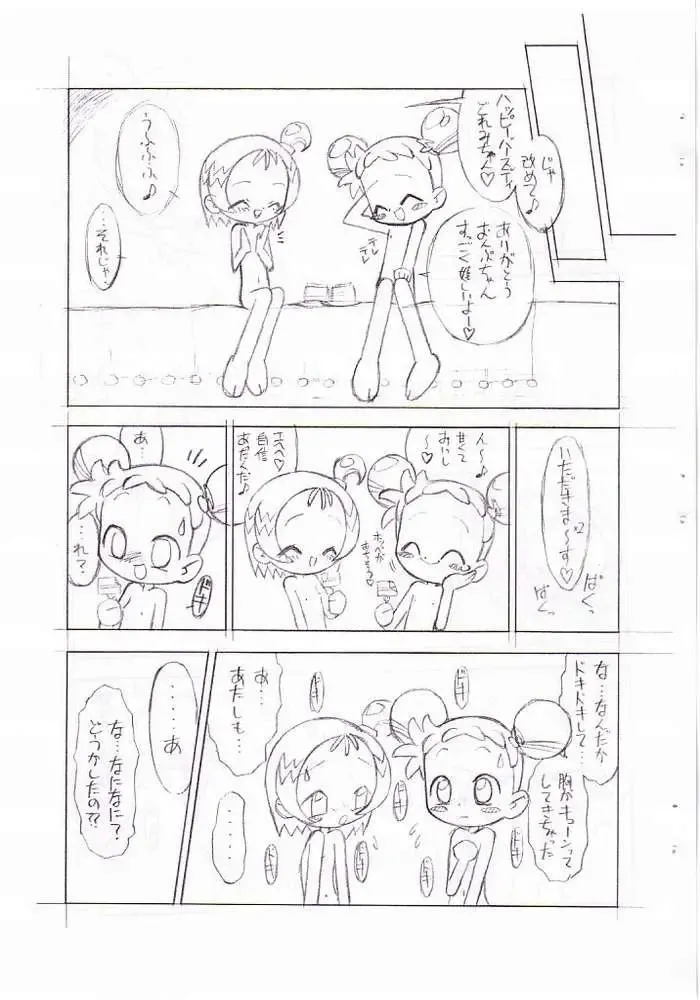 じゃ
改めて♪
ハッピーバースディ
どれみちゃん♡
ありがとう
おんぷちゃん
すっごく嬉しいよー♡
テレ
テレ
うふふふ♪
…それじゃ、
いただきま〜す♡
×2
ぱくっ
ぱくっ
ん〜♪
甘くて
おいし
〜♡
ホッペが
エヘヘ♡
自信
あったんだ♪
あ…
…れ?
ドキ
な…なんだか
ドキドキして…
胸がキューンって
してきちゃった
ドキ
ドキ
ドキ
ドキ
ドキ
あ…
あたしも…
‥‥‥
‥‥‥あ
な…なになに?
どうかしたの??